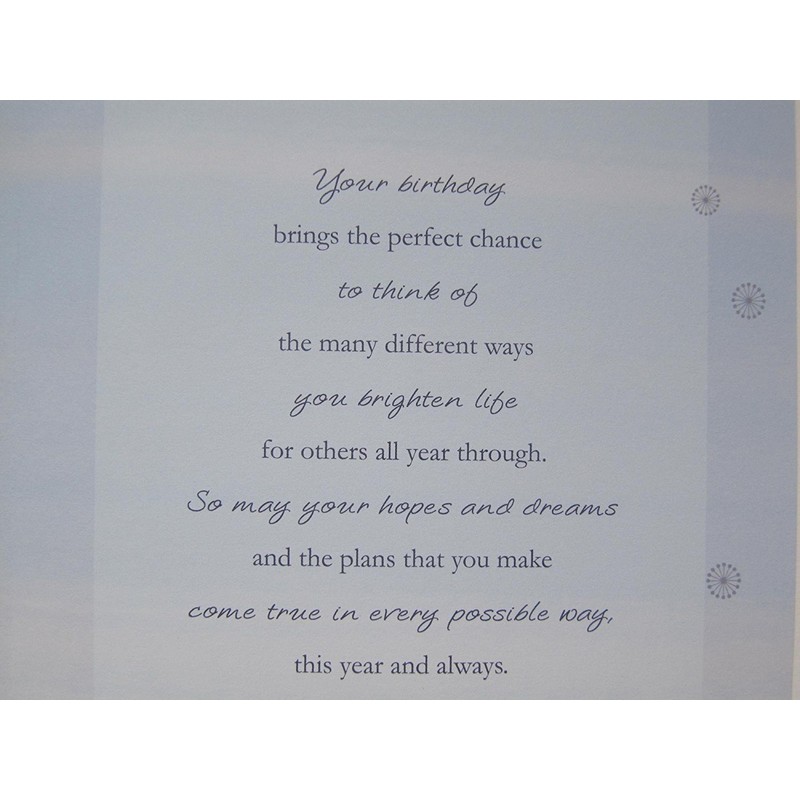 Your birthday
brings the perfect chance
to think of
the many different ways
you brighten life
for others all year through.
So may your hopes and dreams
and the plans that you make
come true in every possible way,
this year and always.